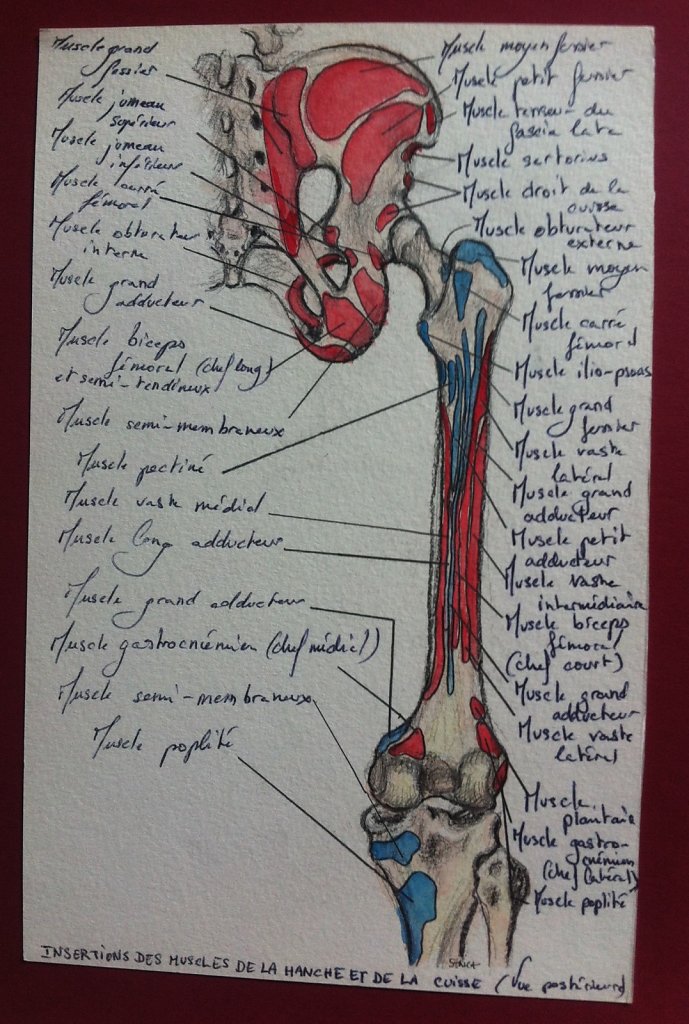 Muscle grand
fessier
Muscle jumeau
supérieur
Muscle jumeau
inférieur
Muscle carré
fémoral
Muscle obturateur
interne
Muscle grand
adducteur
Muscle biceps
fémoral (chef long)
et semi-tendineux
Muscle semi-membraneux
Muscle pectiné
Muscle vaste médial
Muscle long adducteur
Muscle grand adducteur
Muscle gastrocnémien (chef médial)
Muscle semi-membraneux
Muscle poplité
Muscle moyen fessier
Muscle petit fessier
Muscle tenseur du
fascia lata
Muscle sartorius
Muscle droit de la
cuisse
Muscle obturateur
externe
Muscle moyen
fessier
Muscle carré
fémoral
Muscle ilio-psoas
Muscle grand
fessier
Muscle vaste
latéral
Muscle grand
adducteur
Muscle petit
adducteur
Muscle vaste
intermédiaire
Muscle biceps
fémoral
(chef court)
Muscle grand
adducteur
Muscle vaste
latéral
Muscle
plantaire
Muscle gastro-
cnémien
(chef latéral)
Muscle poplité
INSERTIONS DES MUSCLES DE LA HANCHE ET DE LA CUISSE (Vue postérieure)